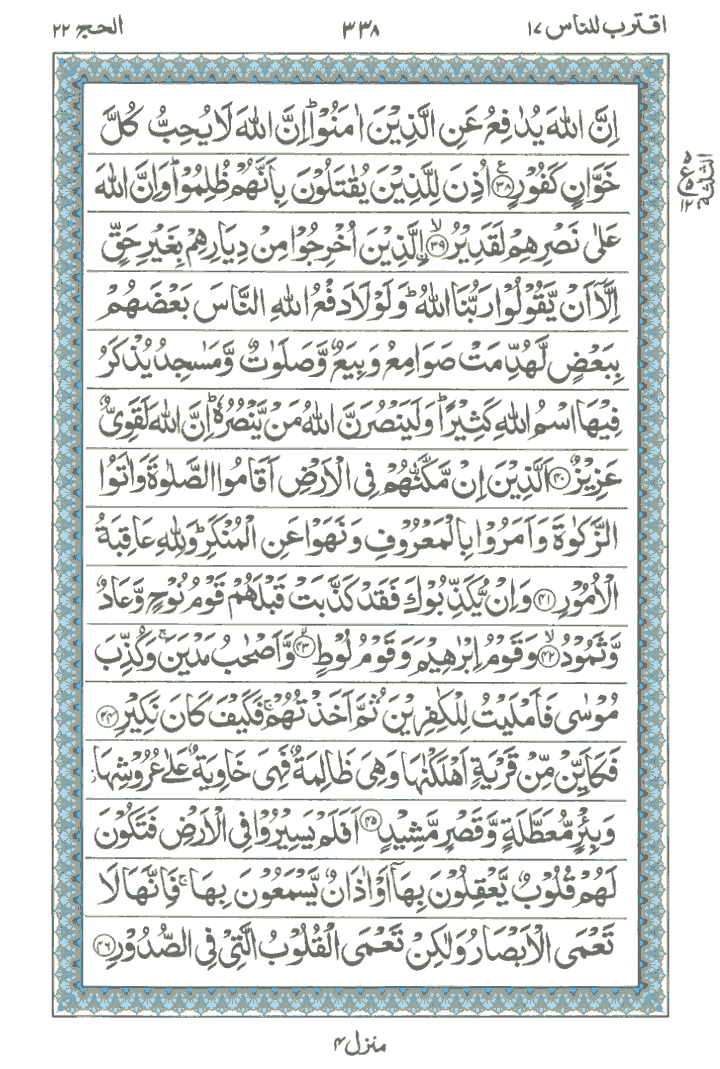 اقترب للناس ۱۷ ۳۳۸ الحج ۲۲
اِنَّ اللهَ يُدٰفِعُ عَنِ الَّذِيْنَ اٰمَنُوْا ؕ اِنَّ اللهَ لَا يُحِبُّ كُلَّ
خَوَّانٍ كَفُوْرٍ ﴿۳۸﴾ اُذِنَ لِلَّذِيْنَ يُقٰتَلُوْنَ بِاَنَّهُمْ ظُلِمُوْا ؕ وَاِنَّ اللهَ
عَلٰى نَصْرِهِمْ لَقَدِيْرُ ۙ﴿۳۹﴾ اۨلَّذِيْنَ اُخْرِجُوْا مِنْ دِيَارِهِمْ بِغَيْرِ حَقٍّ
اِلَّاۤ اَنْ يَّقُوْلُوْا رَبُّنَا اللهُ ؕ وَلَوْلَا دَفْعُ اللهِ النَّاسَ بَعْضَهُمْ
بِبَعْضٍ لَّهُدِّمَتْ صَوَامِعُ وَبِيَعٌ وَّصَلَوٰتٌ وَّمَسٰجِدُ يُذْكَرُ
فِيْهَا اسْمُ اللهِ كَثِيْرًا ؕ وَلَيَنْصُرَنَّ اللهُ مَنْ يَّنْصُرُهٗ ؕ اِنَّ اللهَ لَقَوِىٌّ
عَزِيْزٌ ﴿۴۰﴾ اَلَّذِيْنَ اِنْ مَّكَّنّٰهُمْ فِى الْاَرْضِ اَقَامُوا الصَّلٰوةَ وَاٰتَوُا
الزَّكٰوةَ وَاَمَرُوْا بِالْمَعْرُوْفِ وَنَهَوْا عَنِ الْمُنْكَرِ ؕ وَلِلّٰهِ عَاقِبَةُ
الْاُمُوْرِ ﴿۴۱﴾ وَاِنْ يُّكَذِّبُوْكَ فَقَدْ كَذَّبَتْ قَبْلَهُمْ قَوْمُ نُوْحٍ وَّعَادٌ
وَّثَمُوْدُ ۙ﴿۴۲﴾ وَقَوْمُ اِبْرٰهِيْمَ وَقَوْمُ لُوْطٍ ۙ﴿۴۳﴾ وَّاَصْحٰبُ مَدْيَنَ ۚ وَكُذِّبَ
مُوْسٰى فَاَمْلَيْتُ لِلْكٰفِرِيْنَ ثُمَّ اَخَذْتُهُمْ ۚ فَكَيْفَ كَانَ نَكِيْرِ ﴿۴۴﴾
فَكَاَيِّنْ مِّنْ قَرْيَةٍ اَهْلَكْنٰهَا وَهِىَ ظَالِمَةٌ فَهِىَ خَاوِيَةٌ عَلٰى عُرُوْشِهَا ز
وَبِئْرٍ مُّعَطَّلَةٍ وَّقَصْرٍ مَّشِيْدٍ ﴿۴۵﴾ اَفَلَمْ يَسِيْرُوْا فِى الْاَرْضِ فَتَكُوْنَ
لَهُمْ قُلُوْبٌ يَّعْقِلُوْنَ بِهَاۤ اَوْ اٰذَانٌ يَّسْمَعُوْنَ بِهَا ۚ فَاِنَّهَا لَا
تَعْمَى الْاَبْصَارُ وَلٰكِنْ تَعْمَى الْقُلُوْبُ الَّتِىْ فِى الصُّدُوْرِ ﴿۴۶﴾
الثلثة
۵
ع
۵
۱۲
منزل ۴